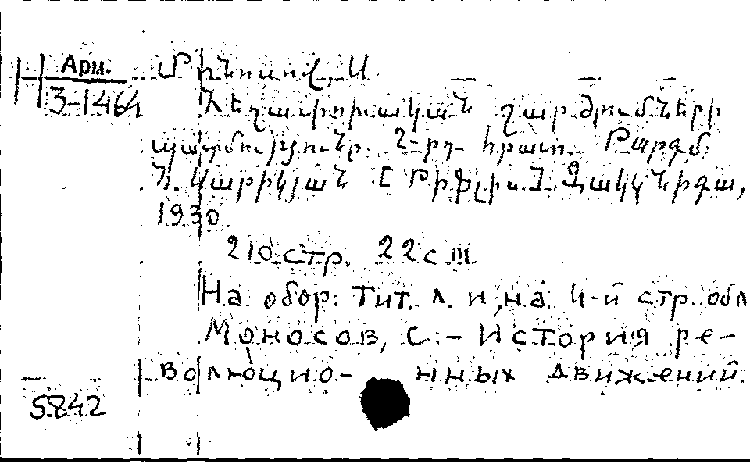 Арм.
3-1464
Մոնոսով, Ս.
Հեղափոխական շարժումների
պատմություն. 2-րդ հրատ. Թարգմ.
Հ. Կարիկյան [Թիֆլիս.] Զակկնիգա,
1930
210 стр. 22 см
На обор. тит. л. и на 4-й стр. обл
Моносов, С. - История ре-
волюцио- нных движений.
5842